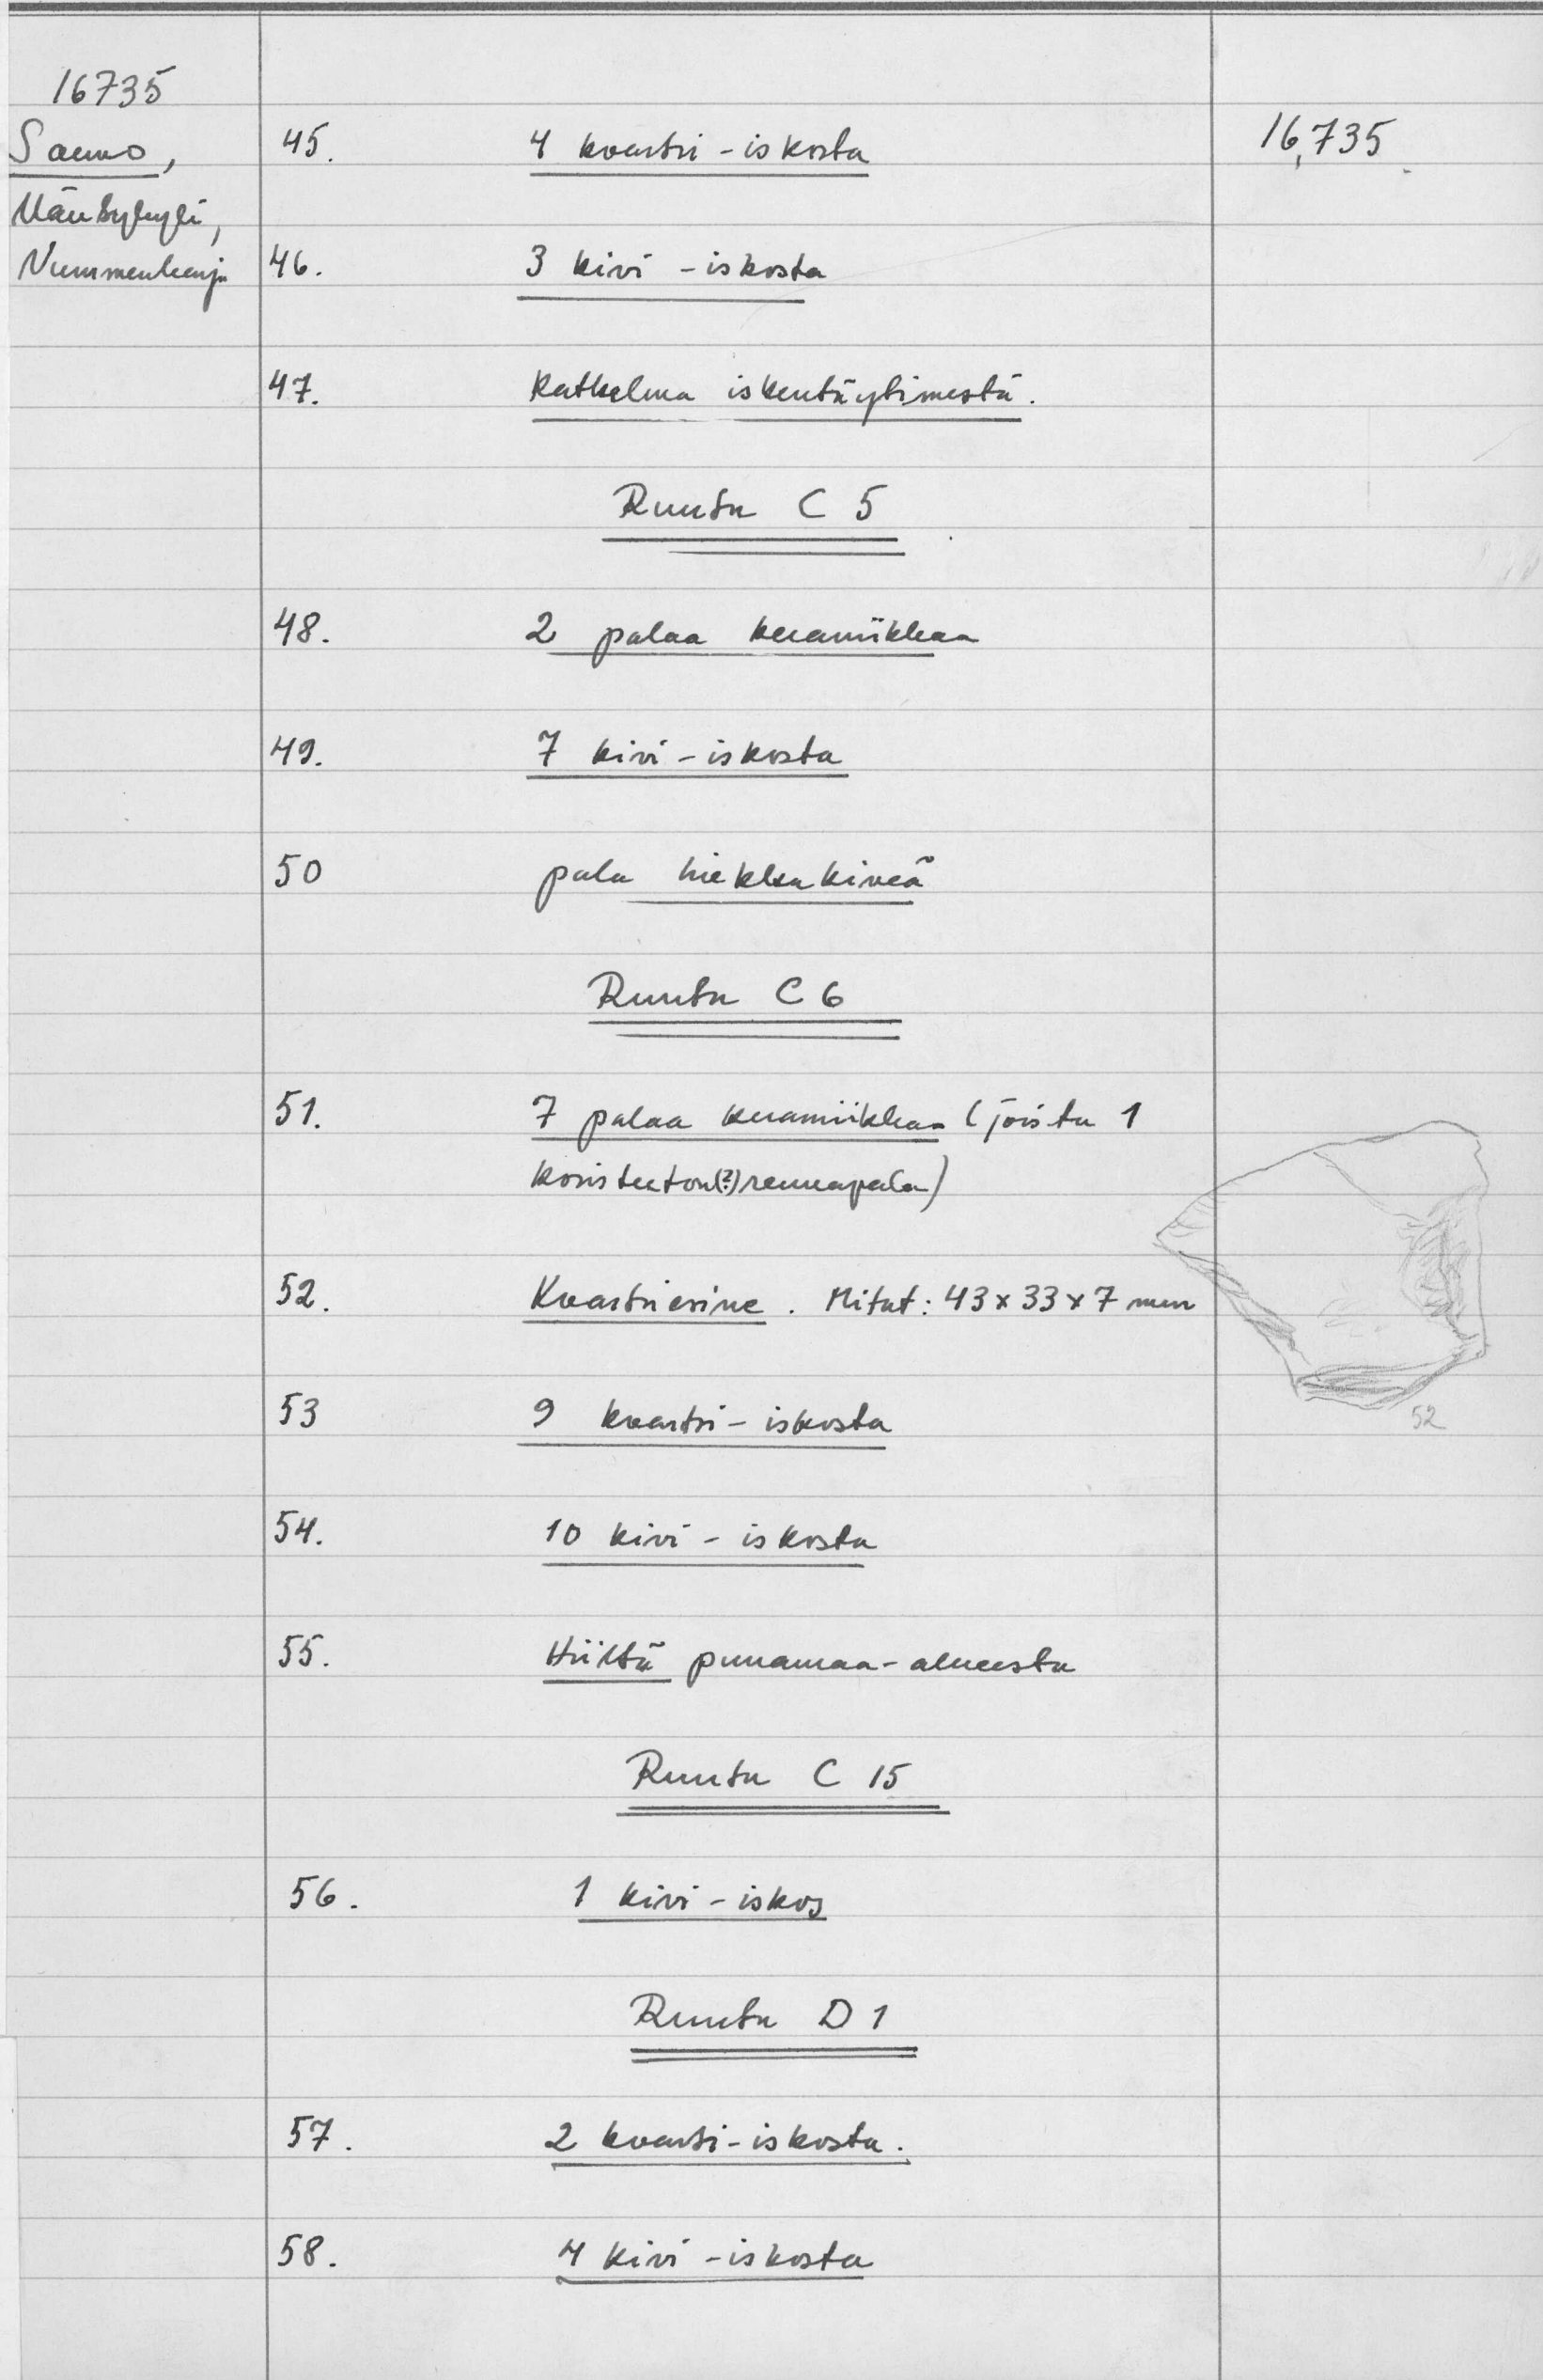 16735
Sauvo,
Nummenharju
16,735
45. 4 kvartsi-iskosta
46. 3 kivi-iskosta
47. Katkelma iskentäytimestä.
Ruutu C 5
48. 2 palaa keramiikkaa
49. 7 kivi-iskosta
50 pala hiekkakiveä
Ruutu C 6
51. 7 palaa keramiikkaa (joista 1
koristeeton(?) reunapala)
52. Kvartsiesine. Mitat: 43x33x7 mm
53 9 kvartsi-iskosta
52
54. 10 kivi-iskosta
55. Hiiltä punamaa-alueesta
Ruutu C 15
56. 1 kivi-iskos
Ruutu D 1
57. 2 kvartsi-iskosta.
58. 4 kivi-iskosta